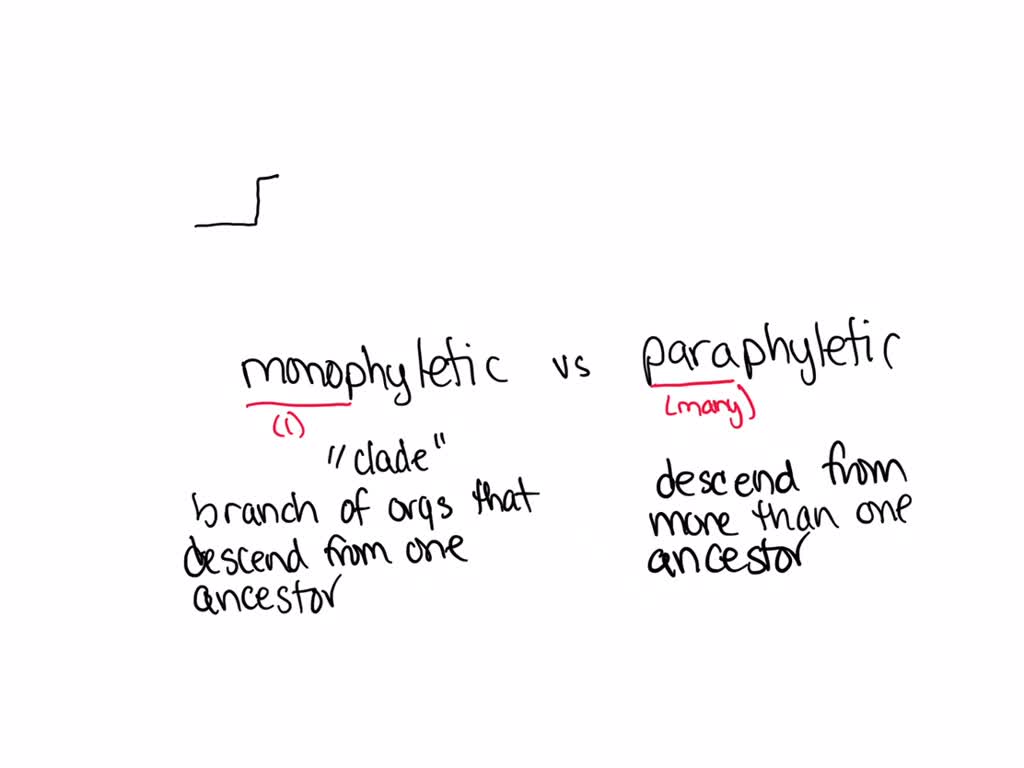 monophyletic vs paraphyletic
(1) (many)
"clade"
branch of orgs that
descend from one
ancestor
descend from
more than one
ancestor